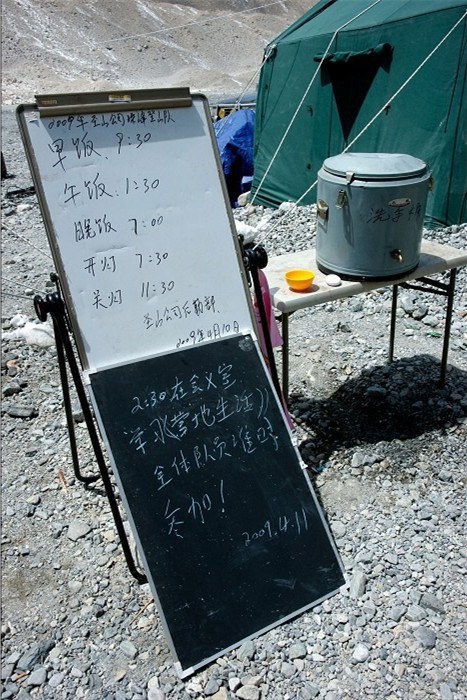 早饭 9:30
午饭 1:30
晚饭 7:00
开灯 7:30
关灯 11:30
登山公司后勤部
2009年4月10日
2:30在会议室
学习《营地生活》
全体队员准时
参加！
2009.4.11
洗手